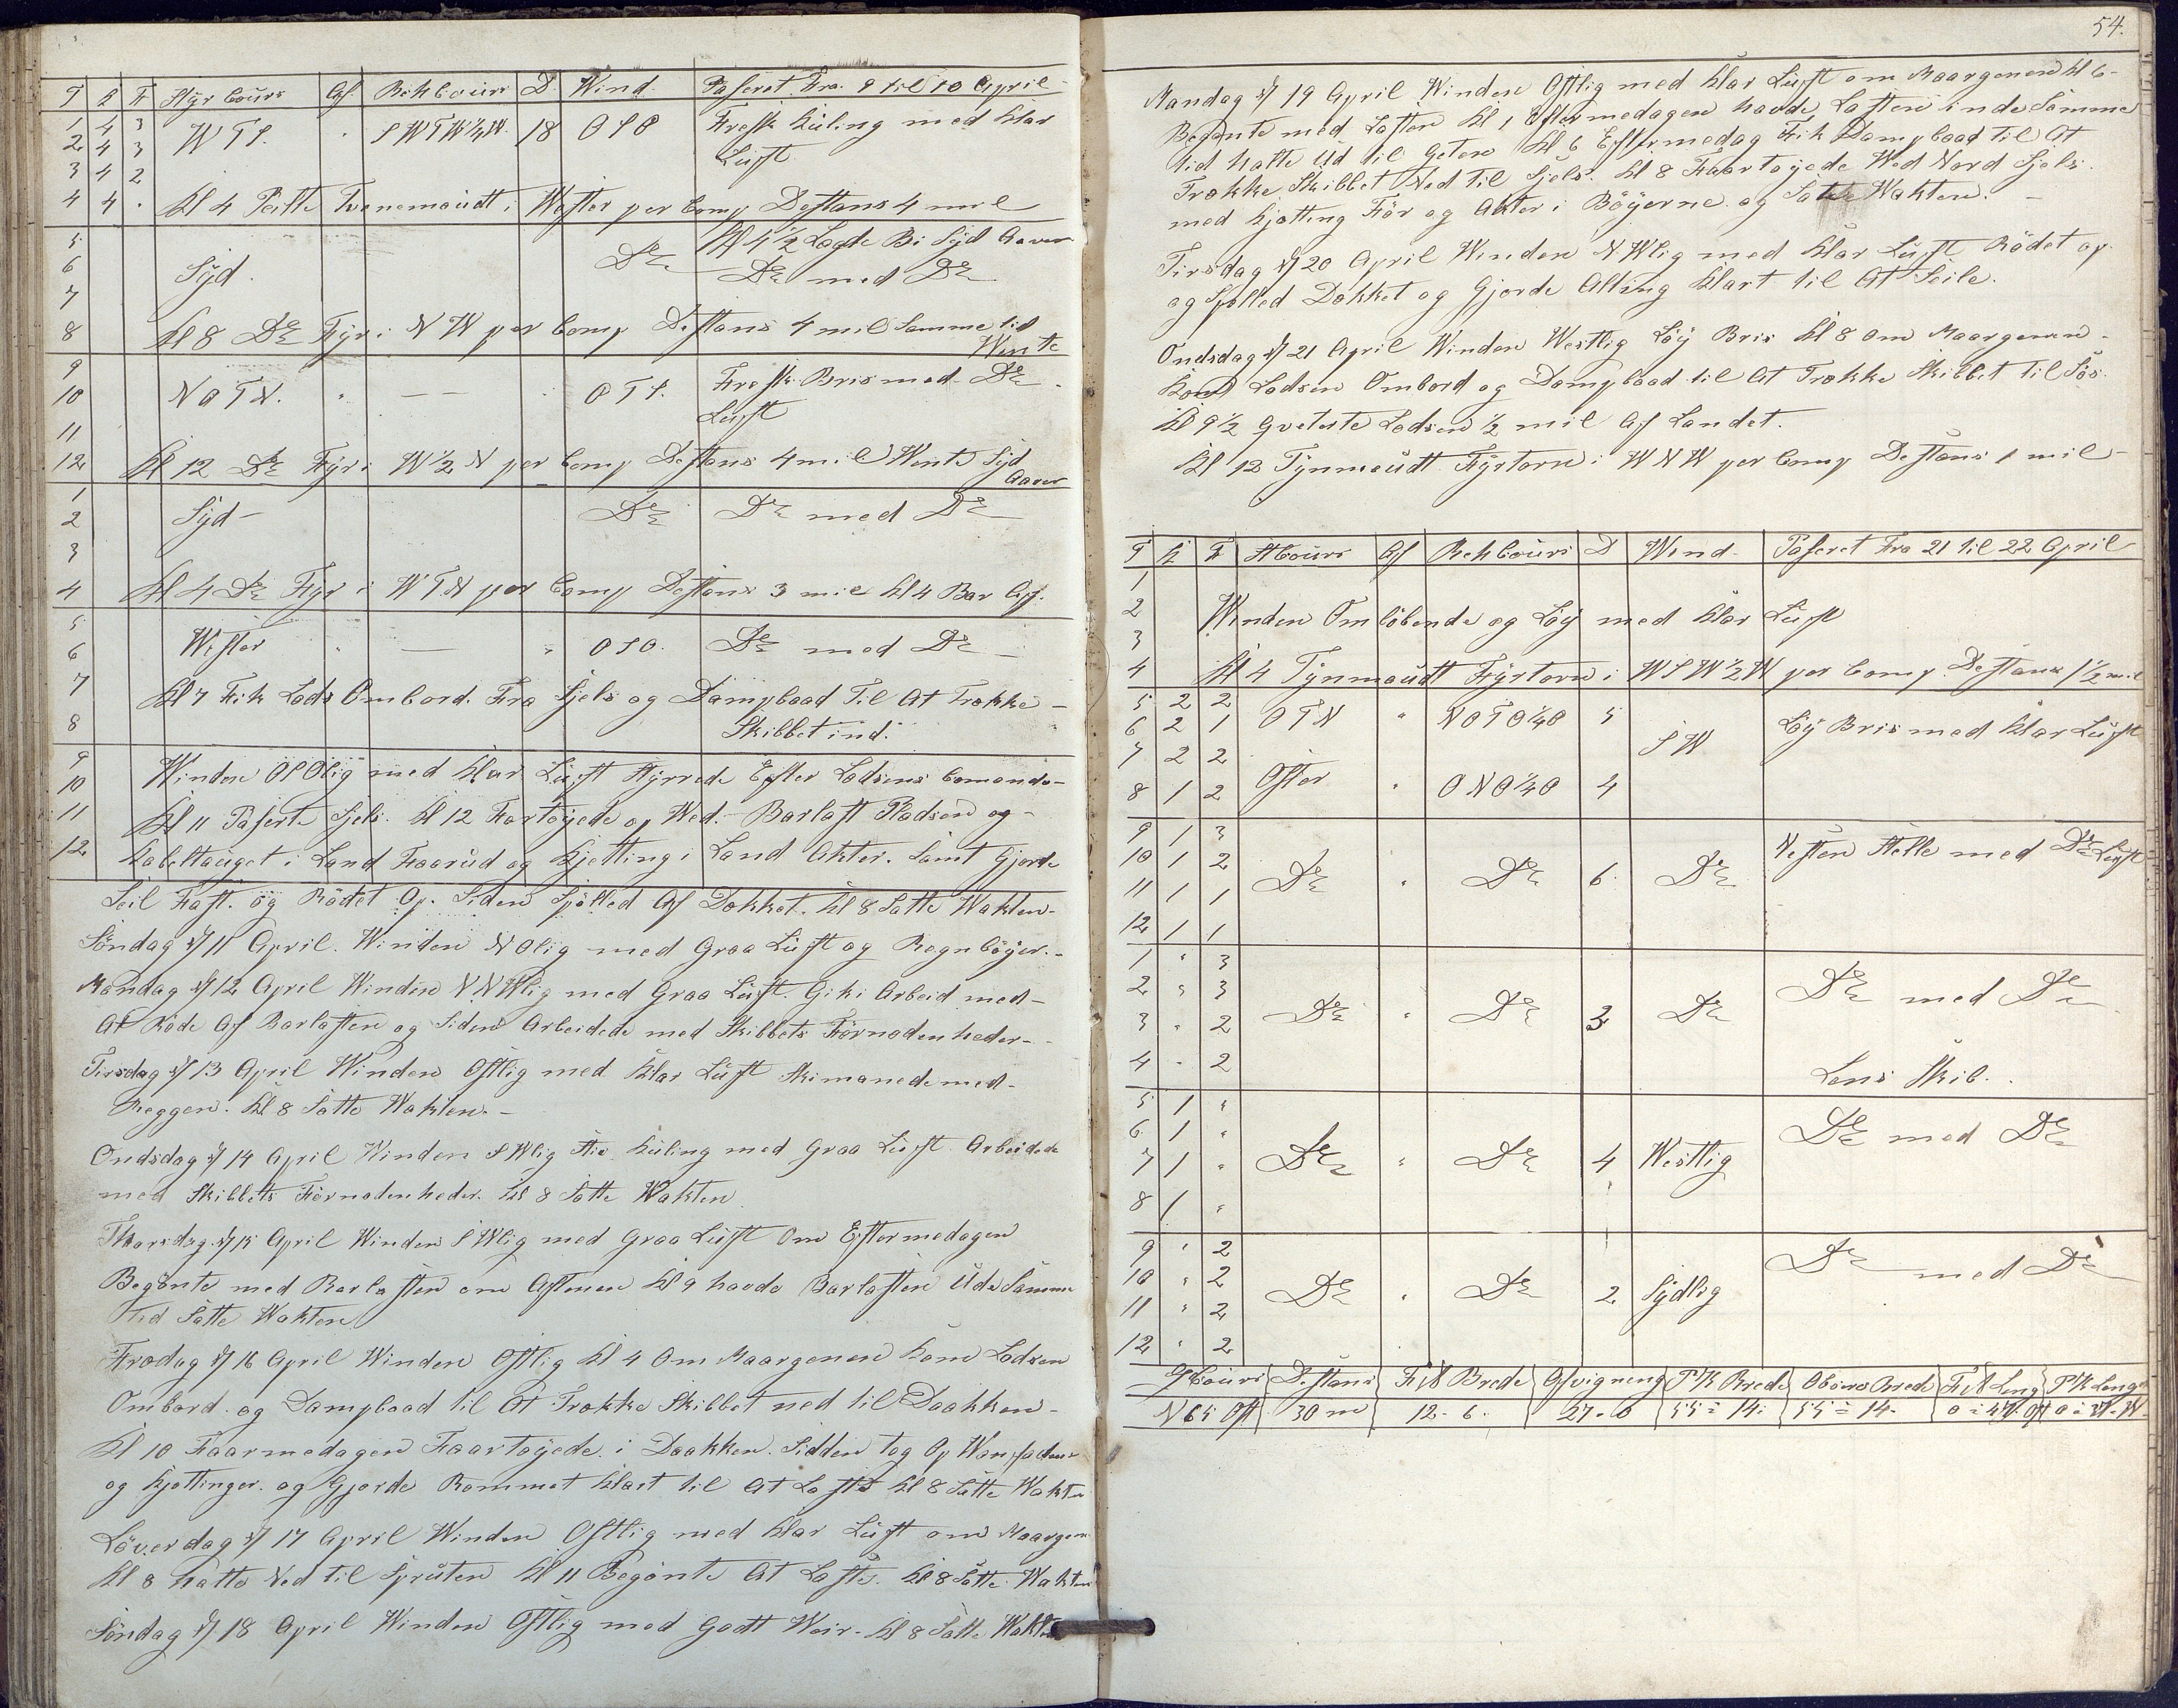 T K F Styr Cours Af. Beh Cours D. Wind. Paseret Fra. 9 til 10 April
1 4 3 WTS. " SWTW¼W. 18 OSO Fresk Kuling med Klar
2 4 3 Luft
3 4 2
4 4 . Kl 4 Peilte Tinemoudt i Wester per Comp Destans 4 mil
5 Kl 4½ Lagde Bi Syd Aaver
6 Syd. Do Do med Do
7
8 Kl 8 Do Fyr i NW per Comp Destans 4 mil Samme tid
Wente
9 NOTN. " — — OTS. Fresk Bris med Do
10 Luft
11
12 Kl 12 Do Fyr i W½N per Comp Destans 4 mil Wente Syd
Aaver
1 Syd — Do Do med Do
2
3
4 Kl 4 Do Fyr i WTN per Comp Destans 3 mil Kl 4 Bar Af.
5 Wester " — " OSO. Do med Do —
6
7 Kl 7 Fik Lods Ombord. Fra Sjels og Dampbaad Til At Trække —
8 Skibbet ind.
9 Winden OSOlig med Klar Luft Styrrede Efter Lodsens Comando —
10
11 Kl 11 Paserte Sjels. Kl 12 Fortøyede op Wed. Barlast Pladsen og —
12 Kabeltauget i Land Faarud og Kjetting i Land Akter. Samt Gjorde
Seil Fast. og Rödet Op. Siden Spölled Af Dækket. Kl 8 Satte Wakten —
Söndag d/ 11 April. Winden NOlig med Graa Luft og Regnböyer. —
Mandag d/ 12 April Winden NNWlig med Graa Luft. Gik i Arbeid med —
At Röde Af Barlasten og Siden Arbeidede med Skibbets Förnodenheder —
Tirsdag d/ 13 April Winden Ostlig med Klar Luft Skimanede med —
Reggen. Kl 8 Satte Wakten. —
Ondsdag d/ 14 April Winden SWlig Stiv Kuling med Graa Luft Arbeidede
med Skibbets Förnodenheder. Kl 8 Satte Wakten
Thorsdag. d/ 15 April Winden SWlig med Graa Luft Om Eftermedagen
Begönte med Barlasten om Aftenen Kl 9 havde Barlasten Ude Samme
Tid Satte Wakten
Fredag d/ 16 April Winden Ostlig Kl 4 Om Maargenen Kom Lodsen
Ombord. og Dampbaad til At Trække Skibbet ned til Daakken —
Kl 10 Faarmedagen Faartøyede i Daakken. Sidden tog Op
og Kjettinger. og Gjorde Rommet Klart til At Laste Kl 8 Satte Wakten
Löverdag d/ 17 April Winden Ostlig med Klar Luft om Maargen
Kl 8 halte Ned til Spruten Kl 11 Begönte At Laste. Kl 8 Satte Wakten
Söndag d/ 18 April Winden Ostlig med Godt Weir. Kl 8 Satte Wakten
54.
Mandag d/ 19 April Winden Ostlig med Klar Luft om Maargenen Kl 6 —
Begönte med Lasten Kl 1 Eftermedagen havde Lasten inde Samme
tid halte Ud til Geten Kl 6 Eftermedag Fik Dampbaad til At
Trække Skibbet Ned til Sjels. Kl 8 Faartøyede Wed Nord Sjels.
med Kjetting För og Akter i Böyerne og Satte Wakten. —
Tirsdag d/ 20 April Winden NWlig med Klar Luft Rödet op
og Spölled Dækket og Gjorde Alting Klart til At Seile.
Ondsdag d/ 21 April Winden Westlig Löy Bris Kl 8 om Maargenen —
Kom Lodsen Ombord og Dampbaad til At Trække Skibbet til Sös.
Kl 9½ Qveterte Lodsen ½ mil Af Landet.
Kl 12 Tynmoudt Fyrtorn i WNW per Comp Destans 1 mil —
T K F St Cours Af Beh Cours D Wind Paseret Fra 21 til 22 April
1
2 Winden Omlöbende og Löy med Klar Luft
3
4 Kl 4 Tynmoudt Fyrtorn i WSW½W per Comp. Destans 1½ mil
5 2 2 OTN " NOTO¼O 5 Löy Bris med Klar Luft
6 2 1 SW
7 2 2
8 1 2 Oster " ONO¼O 4
9 1 3 Nesten Stelle med Do Luft
10 1 2 Do " Do 6 Do
11 1 1
12 1 1
1 " 3 Do med Do
2 " 3 Do " Do 3 Do
3 " 2
4 " 2 Lens Skib.
5 1 " Do med Do
6 1 "
7 1 " Do " Do 4 Westlig
8 1 "
9 " 2 Do med Do
10 " 2 Do " Do 2 Sydlig
11 " 2
12 " 2
G Cours Destans F:N Brede Afvigning P K Brede Obsirv Brede F:N Leng P K Lenge
N 65 Ost 30 m 12 - 6. 27 - 0 55 = 14 = 55 = 14 -